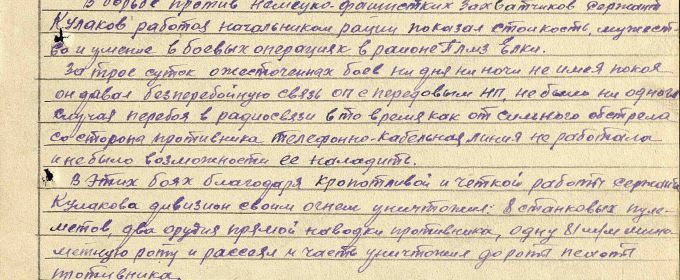 В борьбе против немецко-фашистких захватчиков сержант
Кулаков работая начальником рации показал стойкость, мужест-
во и умение в боевых операциях в районе
За трое суток ожесточенных боев ни дня ни ночи не имея покоя
он давал безперебойную связь ОП с передовым НП, не было ни одного
случая перебоя в радиосвязи в то время как от сильного обстрела
со стороны противника телефонно-кабельная линия не работала
и небыло возможности ее наладить.
В этих боях благодаря кропотливой и четкой работы сержанта
Кулакова дивизион своим огнем уничтожил: 8 станковых пуле-
метов, два орудия прямой наводки противника, одну 81 м/м мино-
метную роту и рассеял и часть уничтожил до роты пехоты
противника